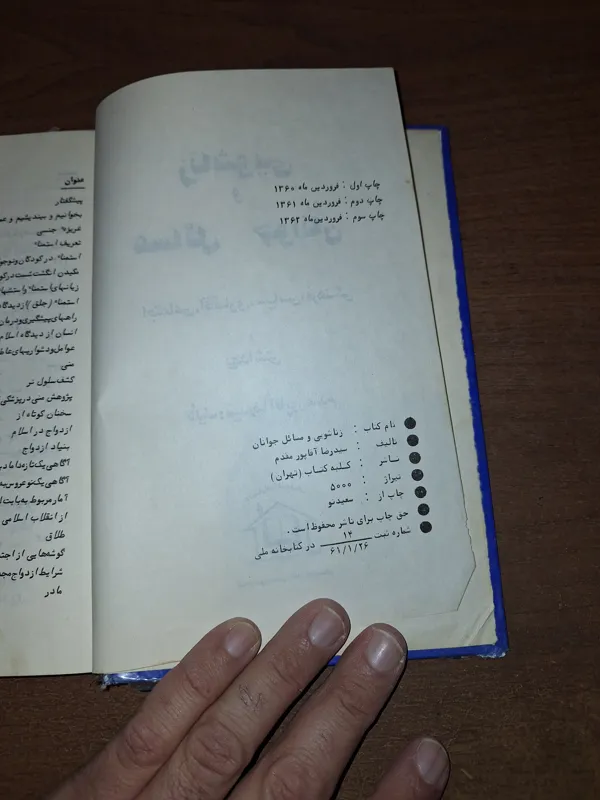 چاپ اول : فروردین ماه ۱۳۶۰
چاپ دوم : فروردین ماه ۱۳۶۱
چاپ سوم : فروردین‌ماه ۱۳۶۲
نام کتاب : زناشویی و مسائل جوانان
تالیف : سیدرضا آقاپور مقدم
ناشر : کلبه کتاب (تهران)
تیراژ : ۵۰۰۰
چاپ از : سعیدنو
حق چاپ برای ناشر محفوظ است.
شماره ثبت ۱۴
۶۱/۱/۲۶ در کتابخانه ملی
عنوان
پیشگفتار
بخوانیم و بیندیشیم و
غریزه جنسی
تعریف استمناء
استمناء در کودکان و
مکیدن انگشت شست
زیانهای استمناء و
استمناء (جلق) از دیدگاه
راههای پیشگیری و درمان
انسان از دیدگاه اسلام
عوامل و دشواریهای
منی
کشف سلول نر
پژوهش منی در پزشکی
سخنان کوتاه از
ازدواج در اسلام
بنیاد ازدواج
آگاهی یک تازه داماد
آگاهی یک نوعروس
آمار مربوط به
از انقلاب اسلامی
طلاق
گوشه‌هایی از
شرایط ازدواج
مادر